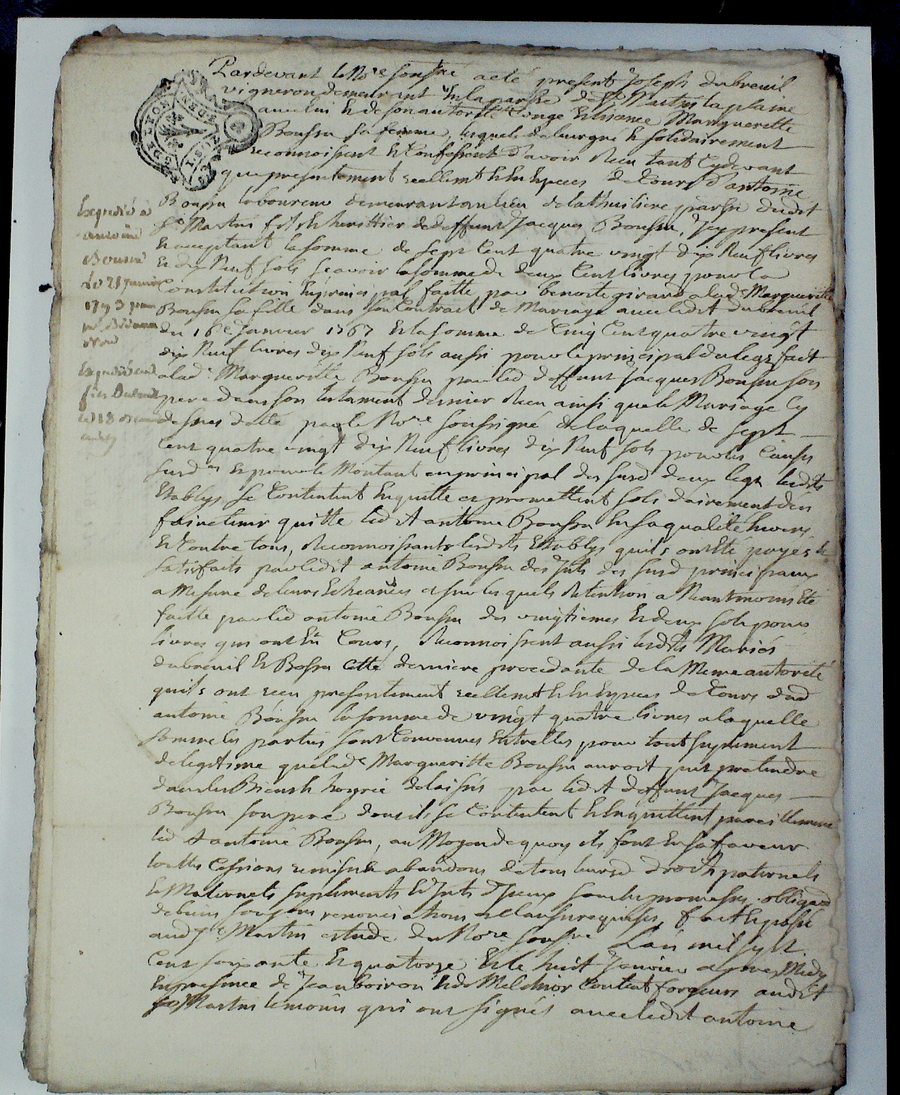 Pardevant le No.re soussigné a été present Joseph dubreuil
vigneron demeurant en la parsse de St Martin la plaine
avec lui et de son autorité Conge et licence Margueritte
Bonson sa femme, lequels de leur gré et solidairement
reconnoissent et Confessent d'avoir Reçu tant Cy devant
que presentement reellement et en Especes de Cours d'antoine
Bonson laboureur demeurant au lieu de la thuiliere parsse dudit
St Martin fils et heritier de deffunt Jacques Bonson, Icy present
et acceptant la somme de sept Cent quatre vingt dix Neuf livres
et dix Neuf sols scavoir la somme de deux Cent livres pour la
Constitution en principal faitte par benoite girard a lad.e Margueritte
Bonson sa fille dans son Contrat de Mariage avec ledit dubreuil
du 16e Janvier 1767 et la somme de Cinq Cent quatre vingt
dix Neuf livres dix Neuf sols aussi pour le principal du legs fait
a lad.e Margueritte Bonson par led. deffunt Jacques Bonson son
pere dans son testament dernier Reçu ainsi que le Mariage Cy
dessus datte par le No.re soussigné de laquelle de sept
Cent quatre vingt dix Neuf livres dix Neuf sols pour les Causes
susd.es et pour le Montant en principal des susd. deux legs lesdits
Etablys se Contentent en quitte et promettent solidairement d'en
faire tenir quitte ledit antoine Bonson en sa qualité Envers
et Contre tous, Reconnoissants lesdits Etablys qu'ils ont été payés et
satisfaits par ledit antoine Bonson des Interets des susd. principaux
a Mesure de leurs Echeances et sur lesquels Retention a Neantmoins été
faitte par led. antoine Bonson des vingtiemes et deux sols pour
livres qui ont Eu Cours, Reconnoissent aussi lesdits Mariés
dubreuil et Bonson Cette derniere procedante de la Meme autorité
qu'ils ont reçu presentement reellement et en Especes de Cours dud.
antoine Bonson la somme de vingt quatre livres a laquelle
somme les parties sont Convenues Entr'elles pour tout suplement
de legitime que lad.e Margueritte Bonson auroit pu pretendre
dans les Biens et hoyrie delaissés par ledit deffunt Jacques
Bonson son pere dont ils se Contentent et en quittent pareillement
ledit antoine Bonson, au Moyen de quoy ils font en sa faveur
toutes Cessions remises et abandons de tous leursd. droits paternels
et Maternels suplements et Interets d'Iceux sous les promesses, obligaon
de biens soumissions renonciations et Clauses requises, fait et passé
aud. St Martin etude du No.re soussigné L'an mil sept
Cent soixante et quatorze et le huit Janvier apres Midy
en presence de Jean boiron et de Melchior Content forgeurs audit
St Martin temoins qui ont signés avec ledit antoine
Expedié a
antoine
Bonson
le 21 Janvier
Expedié aud.